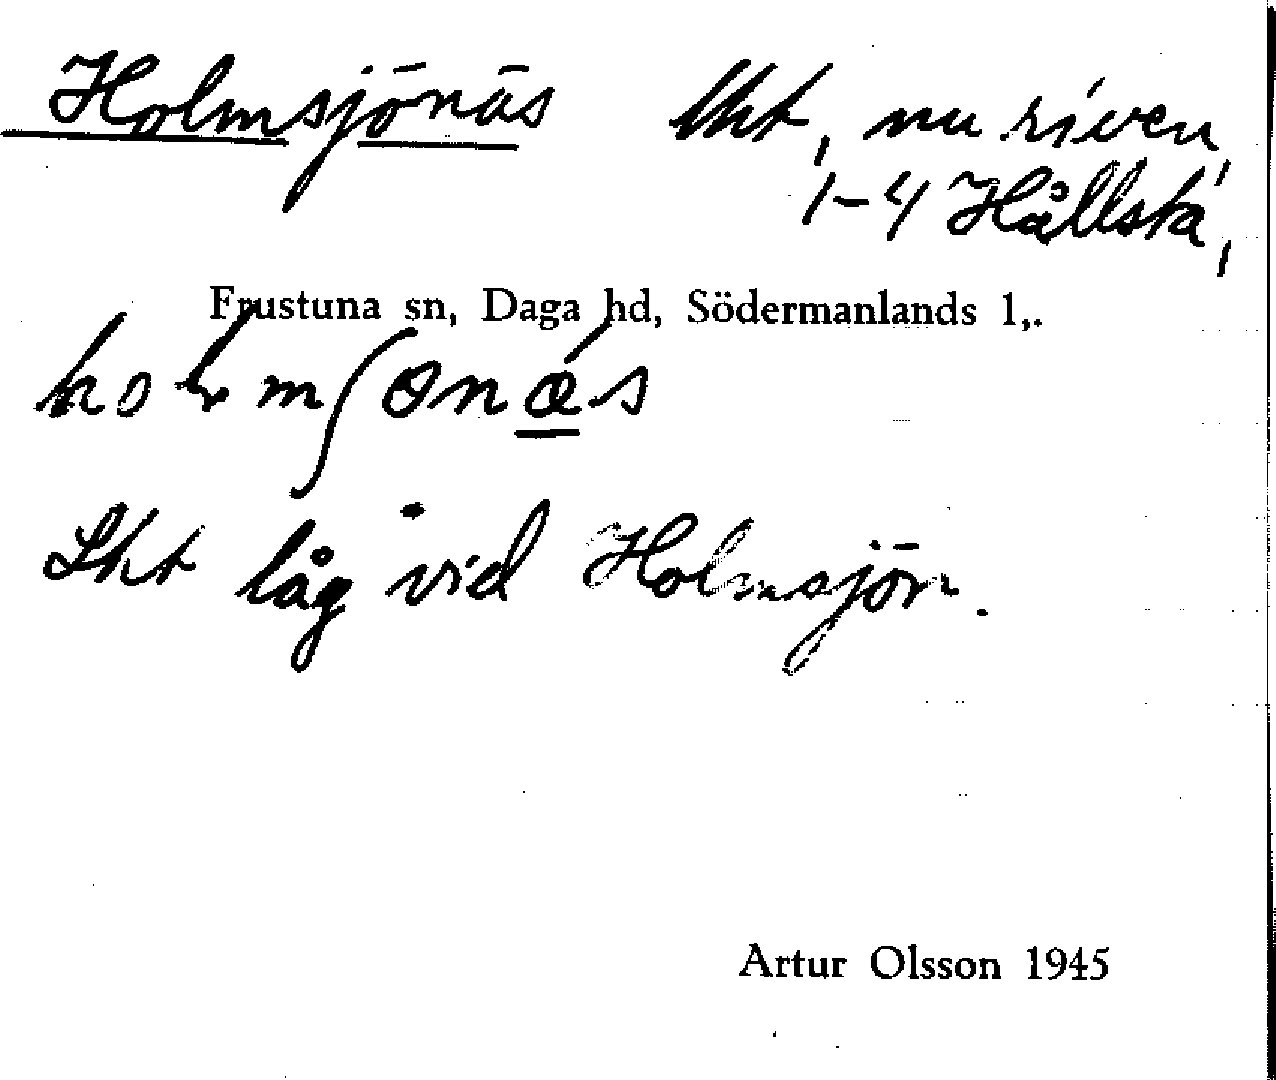 Holmsjönäs lht, nu riven,
1–4 Hållsta,
Frustuna sn, Daga hd, Södermanlands l,.
holmʃɵnǽs
Lht låg vid Holmsjön.
Artur Olsson 1945